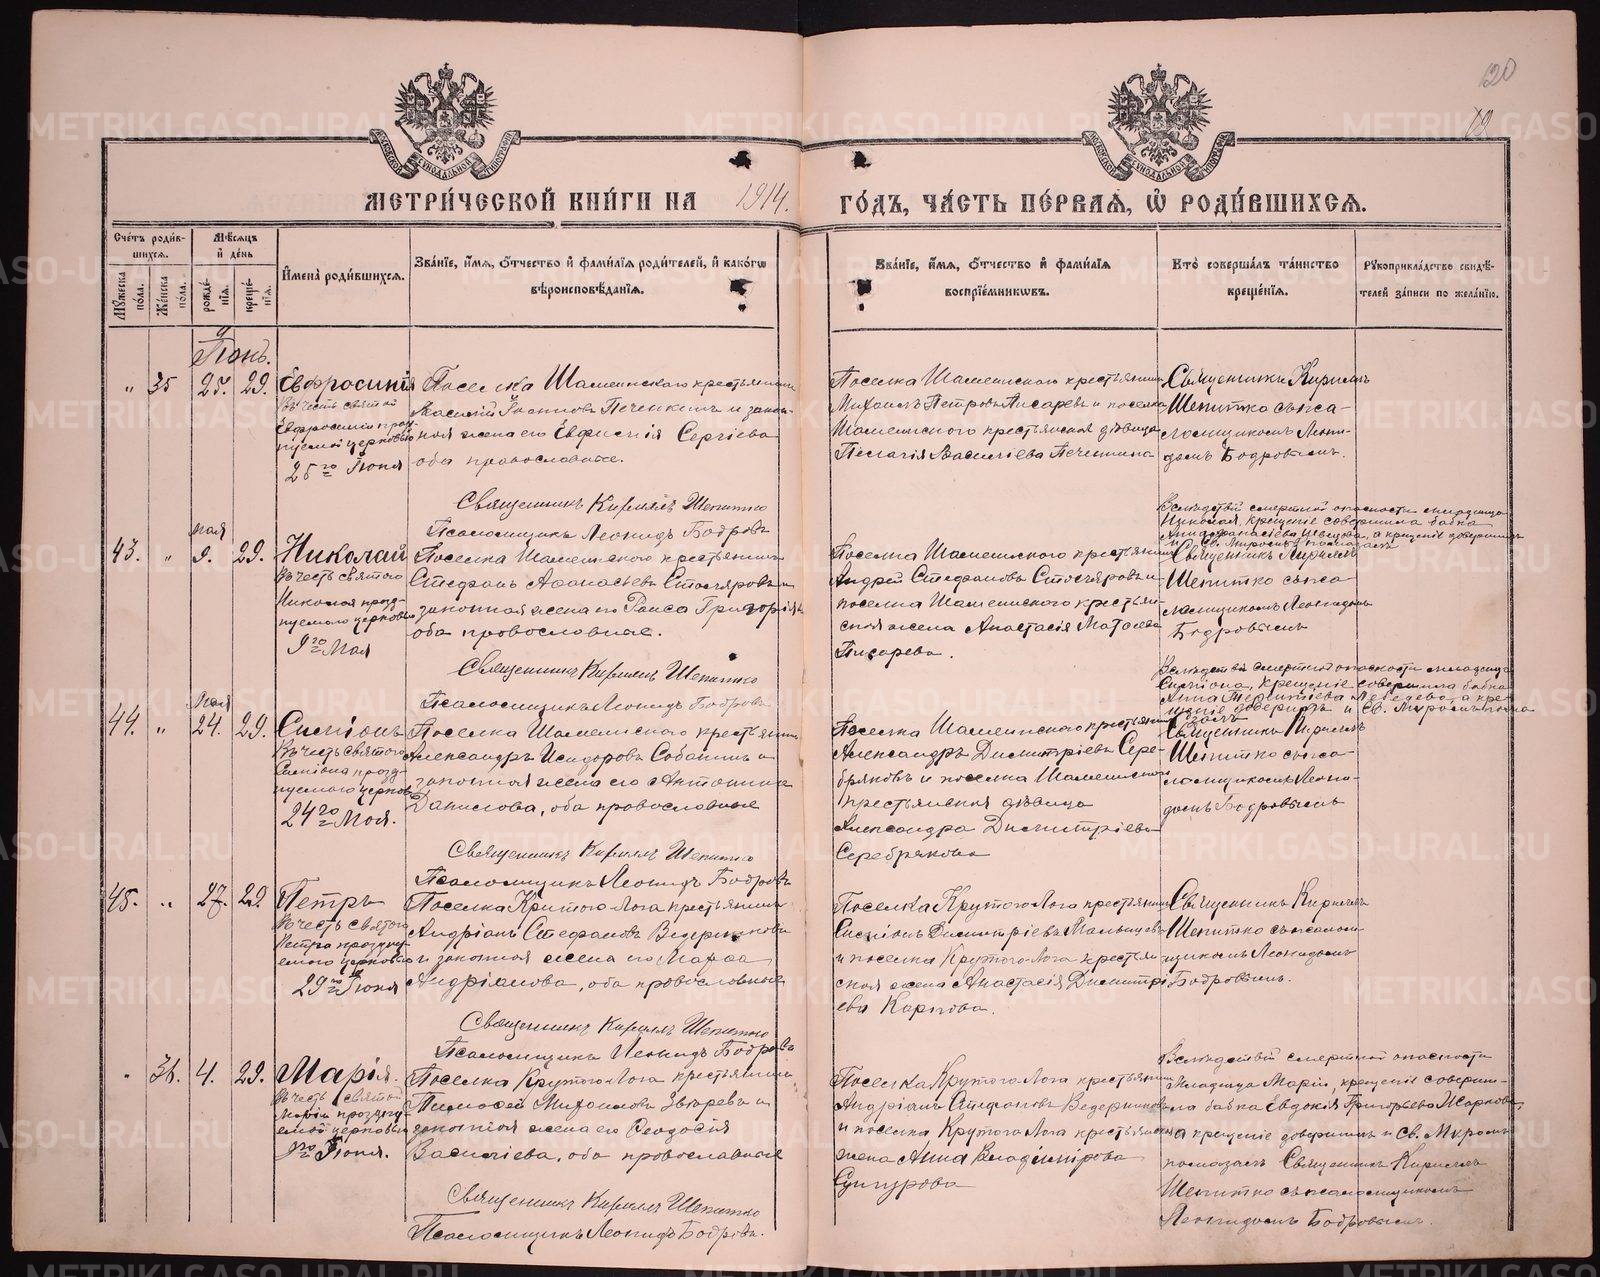 20
12
МЕТРИ́ЧЕСКОЙ КНИ́ГИ НА 1914. ГО́ДЪ, ЧА́СТЬ ПЕ́РВАЯ, Ѡ҆ РОДИ́ВШИХСЯ.
Сче́тъ роди́в-
шихся.
Му́жеска пола.
Же́нска пола.
Мѣ́сяцъ
и҆ де́нь
рожде́нїя.
креще́нїя.
И҆мена̀ роди́вшихся.
Зва́нїе, и҆́мя, ѻ҆́тчество и҆ фами́лїя роди́телей, и҆ како́гѡ
вѣроисповѣ́данїя.
Зва́нїе, и҆́мя, ѻ҆́тчество и҆ фами́лїя
воспрїе́мникѡвъ.
Кто̀ соверша́лъ та́инство
креще́нїя.
Рꙋкоприкла́дство свидѣ́-
телей за́писи по жела́нїю.
Іюнь.
" 35 25. 29. Евфросинія
Въ честь святой
Евфросиніи празд-
нуемой церковью
25го Іюня
Поселка Шамеинского крестьянинъ
Василій Печенкинъ и закон-
ная жена его Сергіева
оба православные.
Священникъ Кириллъ Шепитко
Псаломщикъ Леонидъ Бодровъ
Поселка Шамеинского крестьянинъ
Михаилъ Петровъ Писаревъ и поселка
Шамеинского крестьянская дѣвица
Пелагія Васильева Печенкина
Священникъ Кириллъ
Шепитко съ пса-
ломщикомъ Леони-
домъ Бодровымъ.
Мая
43. " 9. 29. Николай
Въ честь святого
Николая празд-
нуемаго церковью
9го Мая
Поселка Шамеинского крестьянинъ
Стефанъ Афанасьевъ Столяровъ и
законная жена его Раиса Григорьева
оба православные.
Священникъ Кириллъ Шепитко
Псаломщикъ Леонидъ Бодровъ
Поселка Шамеинского крестьянинъ
Андрей Стефановъ Столяровъ и
поселка Шамеинского крестьян-
ская жена Анастасія Матвеева
Писарева.
Вслѣдствіи смертной опасности младенца
Николая, крещеніе совершила бабка
Афанасіева Швецова, а крещеніе довершилъ
и Св. Миромъ помазалъ
Священникъ Кириллъ
Шепитко съ пса-
ломщикомъ Леонидомъ
Бодровымъ
Мая
44. " 24. 29. Симеонъ
Въ честь святого
Симеона празд-
нуемаго церковью
24го Мая.
Поселка Шамеинского крестьянинъ
Александръ Исидоровъ Собанинъ и
законная жена его Антонина
Данилова, оба православные
Священникъ Кириллъ Шепитко
Псаломщикъ Леонидъ Бодровъ
Поселка Шамеинского крестьянинъ
Александръ Димитріевъ Сере-
бряковъ и поселка Шамеинского
крестьянская дѣвица
Александра Димитріева
Серебрякова
Вслѣдствіи смертной опасности младенца
Симеона, крещеніе совершила бабка
Анна Лебедева, а кре-
щеніе довершилъ и Св. Миромъ пома-
залъ
Священникъ Кириллъ
Шепитко съ пса-
ломщикомъ Леони-
домъ Бодровымъ
45. " 27. 29. Петръ
Въ честь святого
Петра праздну-
емаго церковью
29го Іюня
Поселка Крутого Лога крестьянинъ
Андріанъ Стефановъ Ведерниковъ
и законная жена его Марѳа
Андріанова, оба православные
Священникъ Кириллъ Шепитко
Псаломщикъ Леонидъ Бодровъ
Поселка Крутого Лога крестьянинъ
Симеонъ Димитріевъ Малышевъ
и поселка Крутого Лога крестьян-
ская жена Анастасія Димитрі-
ева Карпова.
Священникъ Кириллъ
Шепитко съ псалом-
щикомъ Леонидомъ
Бодровымъ.
" 36. 4. 29. Марія.
Въ честь святой
Маріи праздну-
емой церковью
Іюня.
Поселка Крутого Лога крестьянинъ
Тимофей Михаиловъ Звѣревъ и
законная жена его Ѳеодосія
Васильева, оба православные
Священникъ Кириллъ Шепитко
Псаломщикъ Леонидъ Бодровъ.
Поселка Крутого Лога крестьянинъ
Андріанъ Стефановъ Ведерниковъ
и поселка Крутого Лога крестьянская
жена Анна Владимірова
Сунгурова
Вслѣдствіи смертной опасности
младенца Маріи, крещеніе соверши-
ла бабка Евдокія Григорьева Жаркова,
а крещеніе довершилъ и Св. Миромъ
помазалъ Священникъ Кириллъ
Шепитко съ псаломщикомъ
Леонидомъ Бодровымъ.